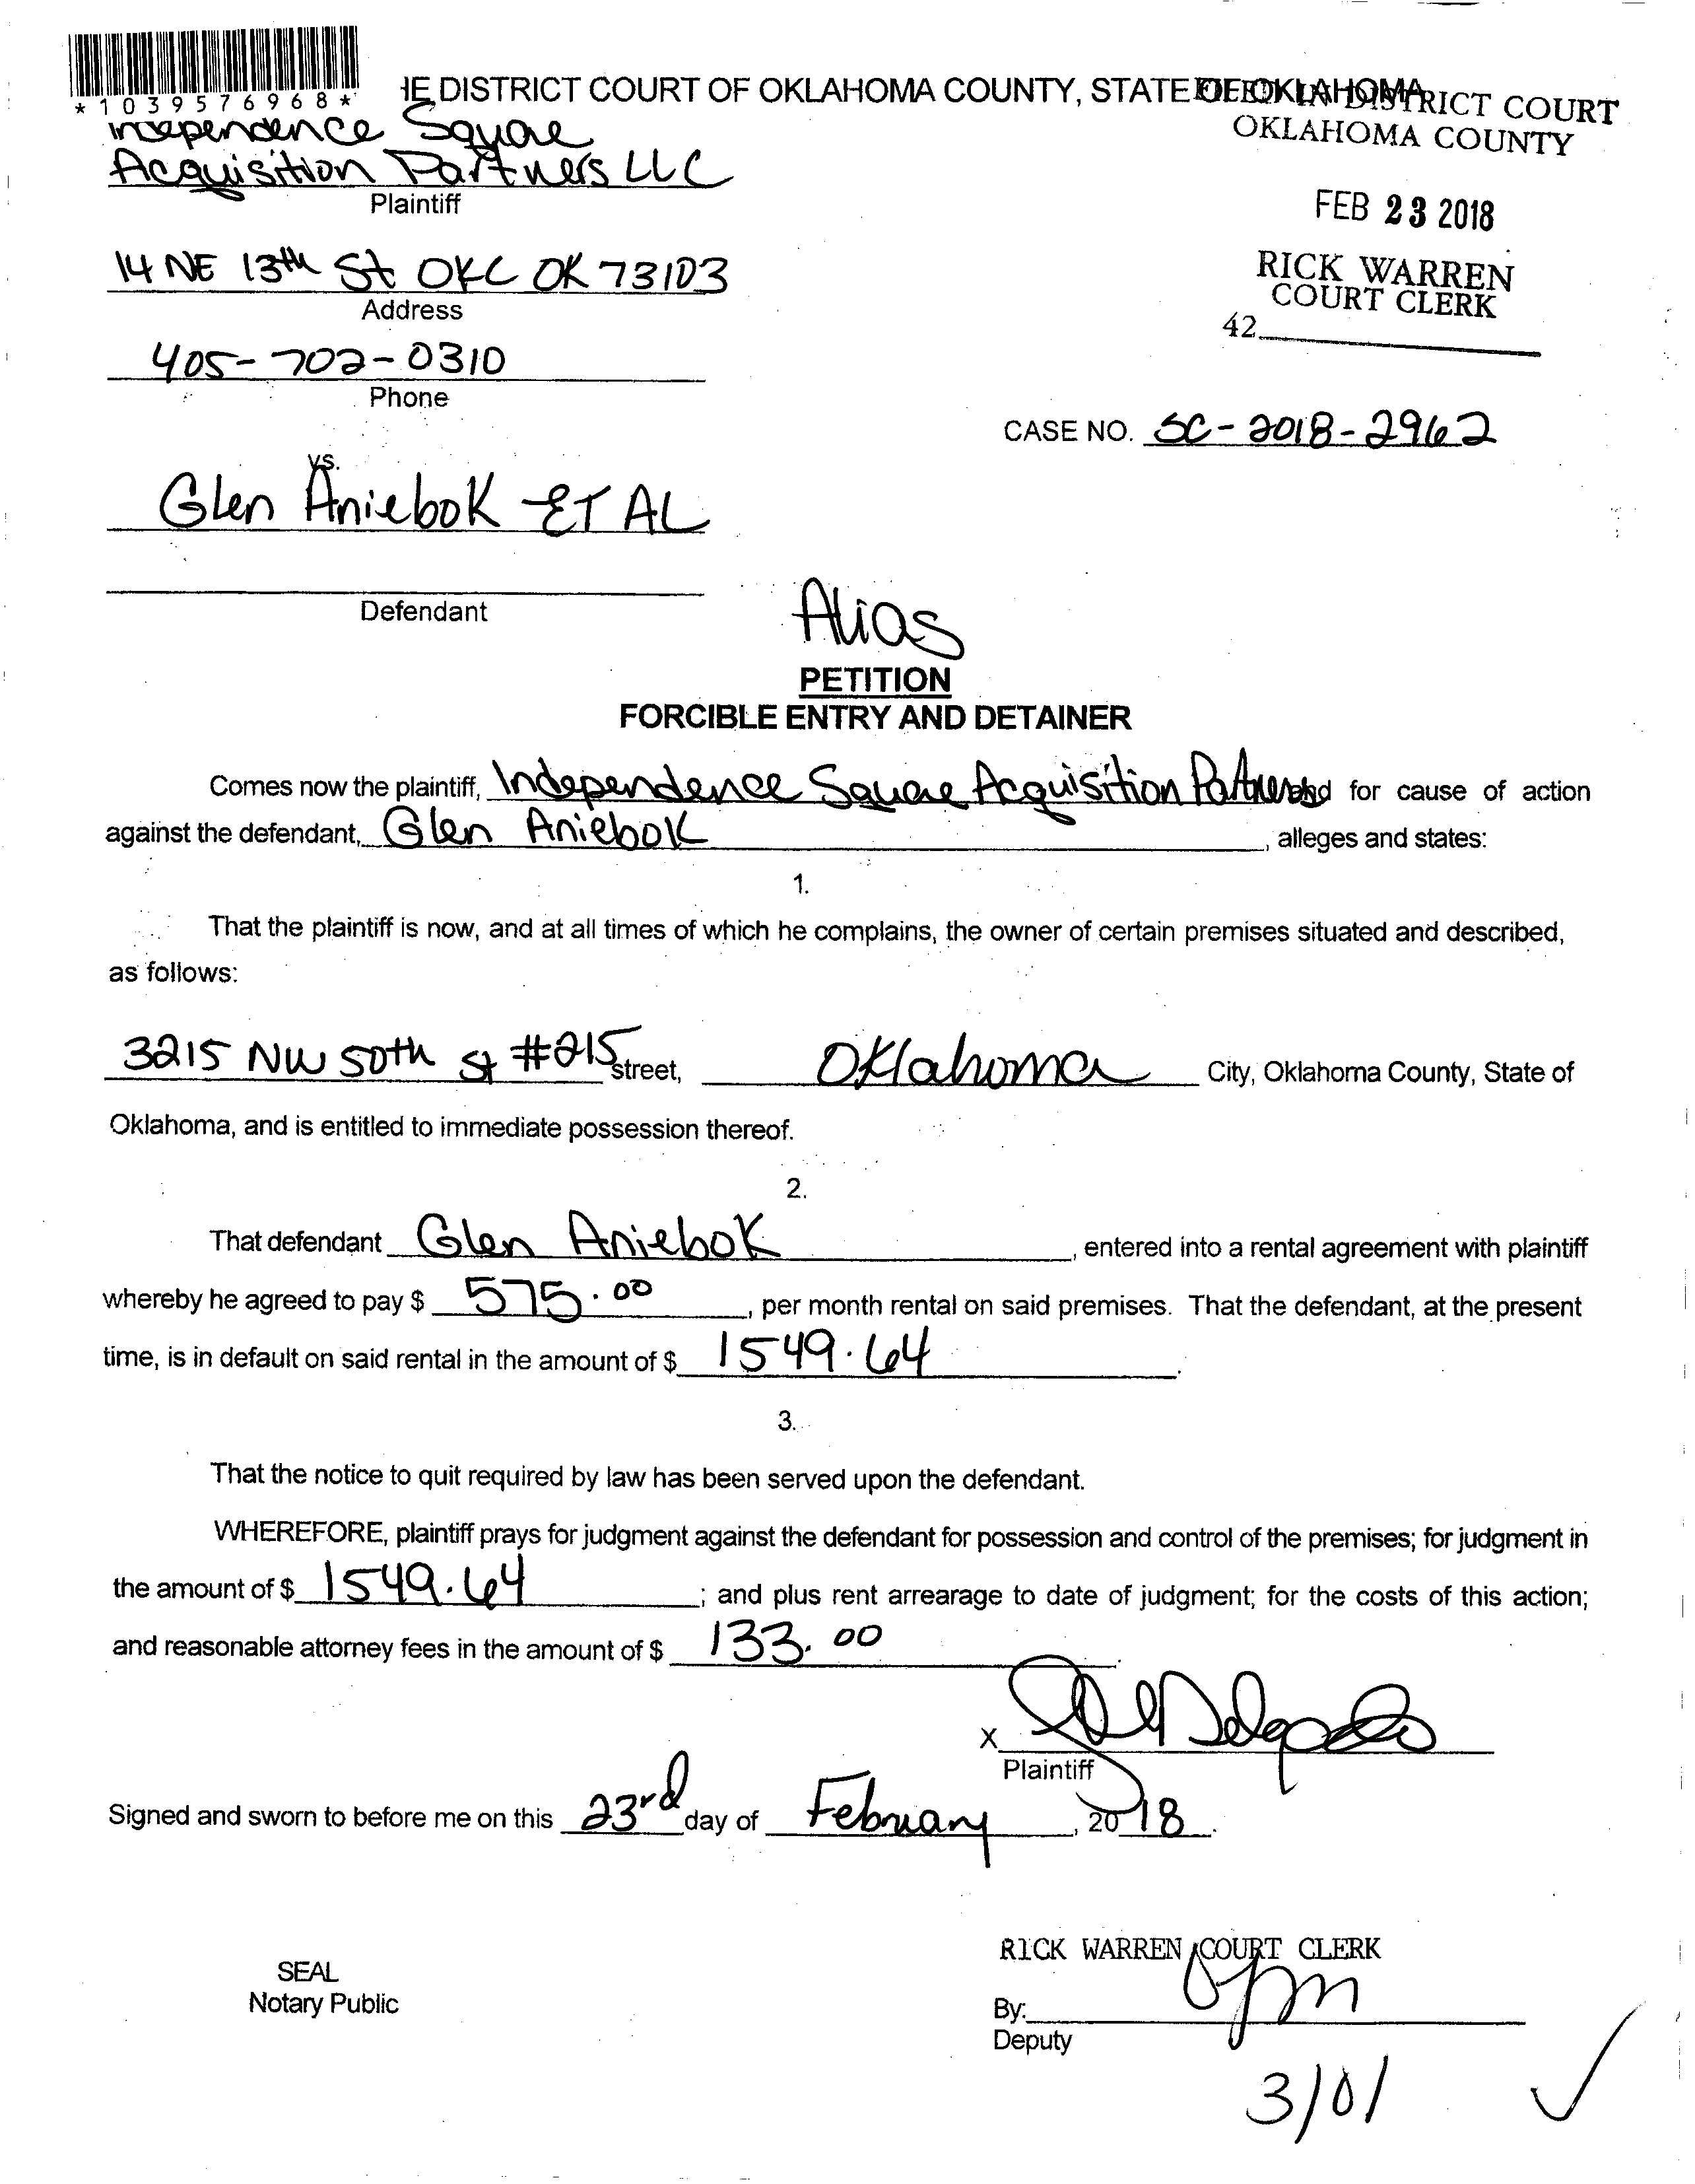 *1039576968*
IE DISTRICT COURT OF OKLAHOMA COUNTY, STATE OF OKLAHOMA
FILED IN DISTRICT COURT
OKLAHOMA COUNTY
FEB 23 2018
RICK WARREN
COURT CLERK
42
Independence Square
Acquisition Partners LLC
Plaintiff
14 NE 13th St OKC OK 73103
Address
405-702-0310
Phone
CASE NO. SC-2018-2962
vs.
Glen Aniebok ET AL
Defendant
Alias
PETITION
FORCIBLE ENTRY AND DETAINER
Comes now the plaintiff, Independence Square Acquisition Partners and for cause of action
against the defendant, Glen Aniebok, alleges and states:
1.
That the plaintiff is now, and at all times of which he complains, the owner of certain premises situated and described,
as follows:
3215 NW 50th St #215 street, Oklahoma City, Oklahoma County, State of
Oklahoma, and is entitled to immediate possession thereof.
2.
That defendant Glen Aniebok, entered into a rental agreement with plaintiff
whereby he agreed to pay $ 575.00, per month rental on said premises. That the defendant, at the present
time, is in default on said rental in the amount of $ 1549.64.
3.
That the notice to quit required by law has been served upon the defendant.
WHEREFORE, plaintiff prays for judgment against the defendant for possession and control of the premises; for judgment in
the amount of $ 1549.64; and plus rent arrearage to date of judgment; for the costs of this action;
and reasonable attorney fees in the amount of $ 133.00.
X Delgado
Plaintiff
Signed and sworn to before me on this 23rd day of February, 2018.
RICK WARREN COURT CLERK
SEAL
Notary Public
By:
Deputy
3/01